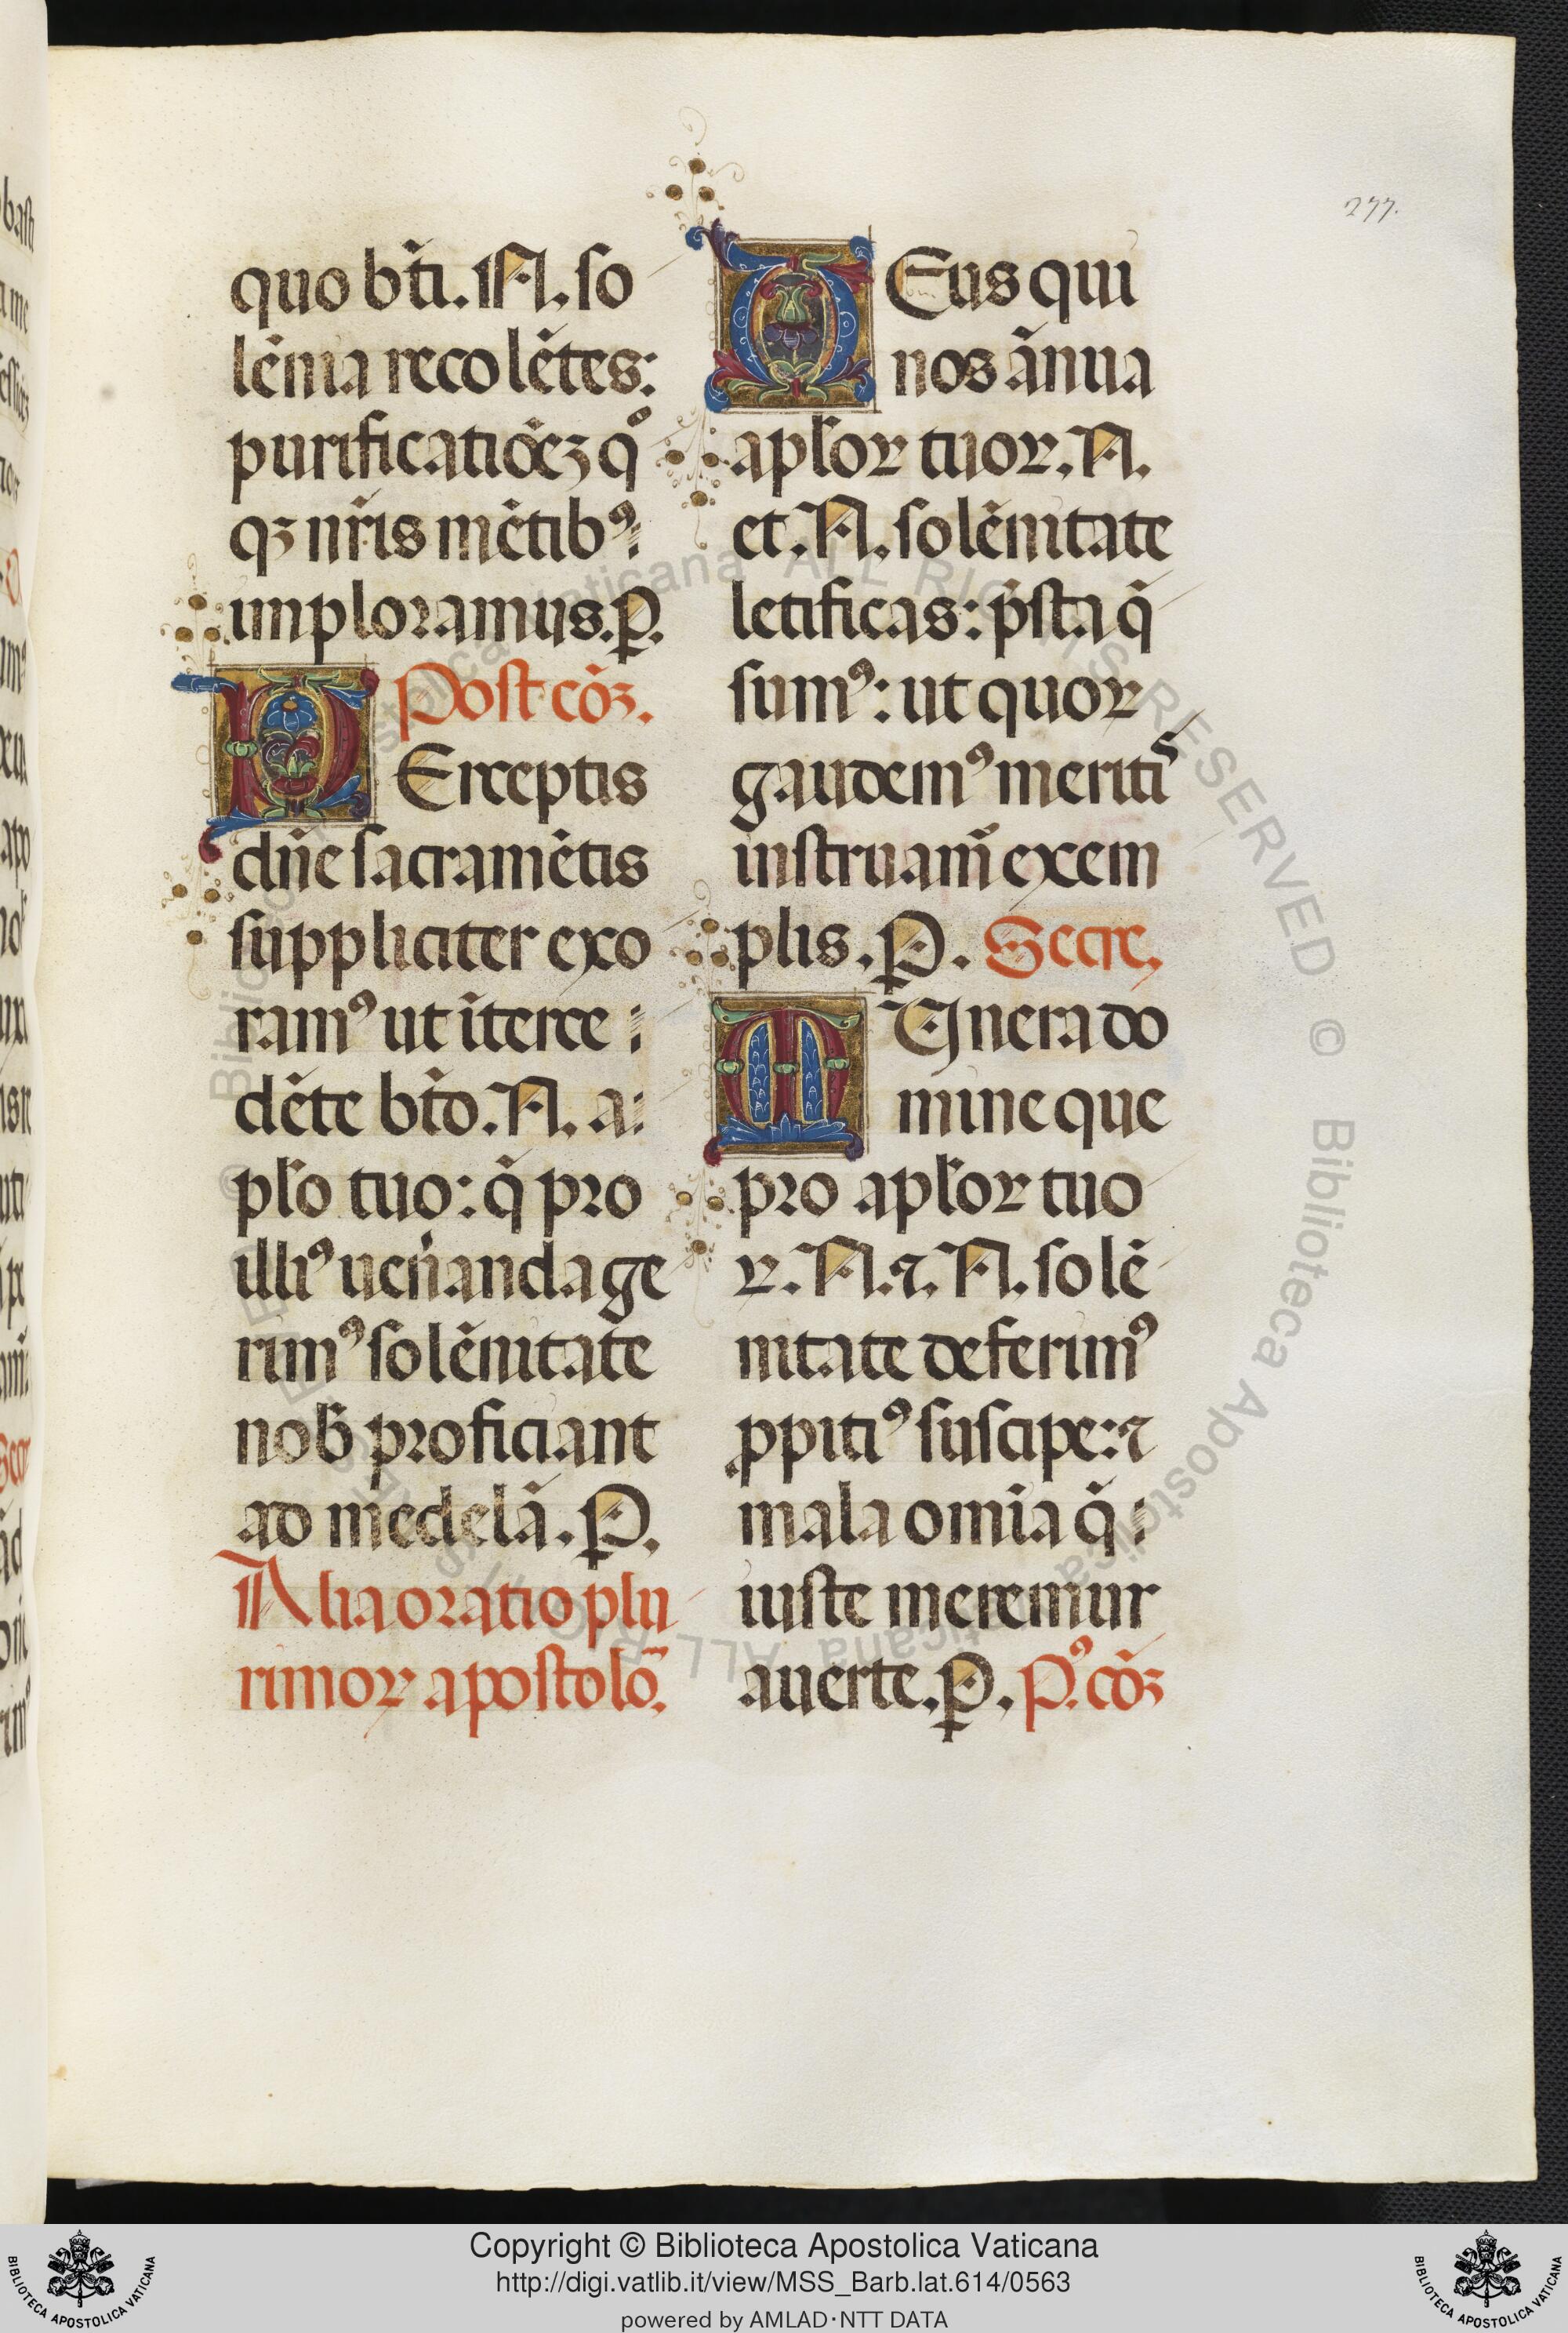 277.
quo bt̃i. A. so
lẽnia recolẽtes:
purificatiõeʒ qͦ
qʒ nr̃is mẽtibꝰ
imploramus. P.
Post cõʒ.
PErceptis
dñe sacramẽtis
suppliciter exo
ramꝰ ut ĩterce
dẽte btõ. A. a
pl̃o tuo: q̃ pro
illiꝰ uen̓anda ge
rimꝰ solẽnitate
nob̃ proficiant
ad medelã. P.
Alia oratio plu
rimoꝝ apostolõ.
DEus qui
nos ãnua
apl̃oꝝ tuoꝝ. A.
et. A. solẽnitate
letificas: p̃sta q̃
sumꝰ: ut quoꝝ
gaudemꝰ meritiˢ
instruam̃ exem
plis. P. Secre.
MUnera do
mine que
pro apl̃oꝝ tuo
ꝝ. A. ⁊. A. solẽ
nitate deferimꝰ
ꝓpitiꝰ suscipe: ⁊
mala om̃ia q̃
iuste meremur
auerte. P. Pꝰ.cõʒ
Copyright © Biblioteca Apostolica Vaticana
http://digi.vatlib.it/view/MSS_Barb.lat.614/0563
powered by AMLAD·NTT DATA
BIBLIOTECA APOSTOLICA VATICANA
BIBLIOTECA APOSTOLICA VATICANA